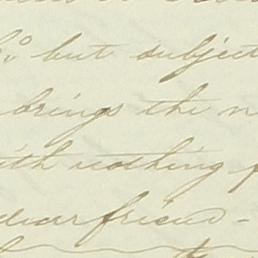 but subject
brings the
with nothing
dear friend -